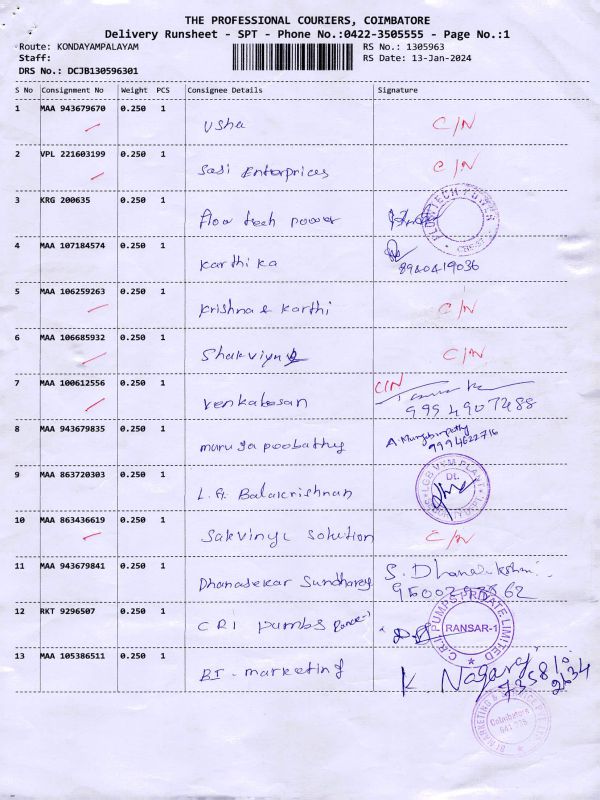 THE PROFESSIONAL COURIERS, COIMBATORE
Delivery Runsheet - SPT - Phone No.:0422-3505555 - Page No.:1
Route: KONDAYAMPALAYAM RS No.: 1305963
Staff: RS Date: 13-Jan-2024
DRS No.: DCJB130596301
S No Consignment No Weight PCS Consignee Details Signature
1 MAA 943679670 0.250 1
Usha C/N
2 VPL 221603199 0.250 1
Sasi Enterprices C/N
3 KRG 200635 0.250 1
floo tech power
4 MAA 107184574 0.250 1
Karthika 8940419036
5 MAA 106259263 0.250 1
Krishna & Karthi C/N
6 MAA 106685932 0.250 1
C/N
7 MAA 100612556 0.250 1 C/N
Venkatesan 9994907288
8 MAA 943679835 0.250 1
9994622716
9 MAA 863720303 0.250 1
L.A. Balakrishnan
10 MAA 863436619 0.250 1
Solution C/N
11 MAA 943679841 0.250 1 S. Dhanalakshmi
Dhanasekar
12 RKT 9296507 0.250 1
CRI pumbs C.R.I. PUMPS PRIVATE LIMITED RANSAR-1
13 MAA 105386511 0.250 1
BI - marketing K Nagaraj
Coimbatore